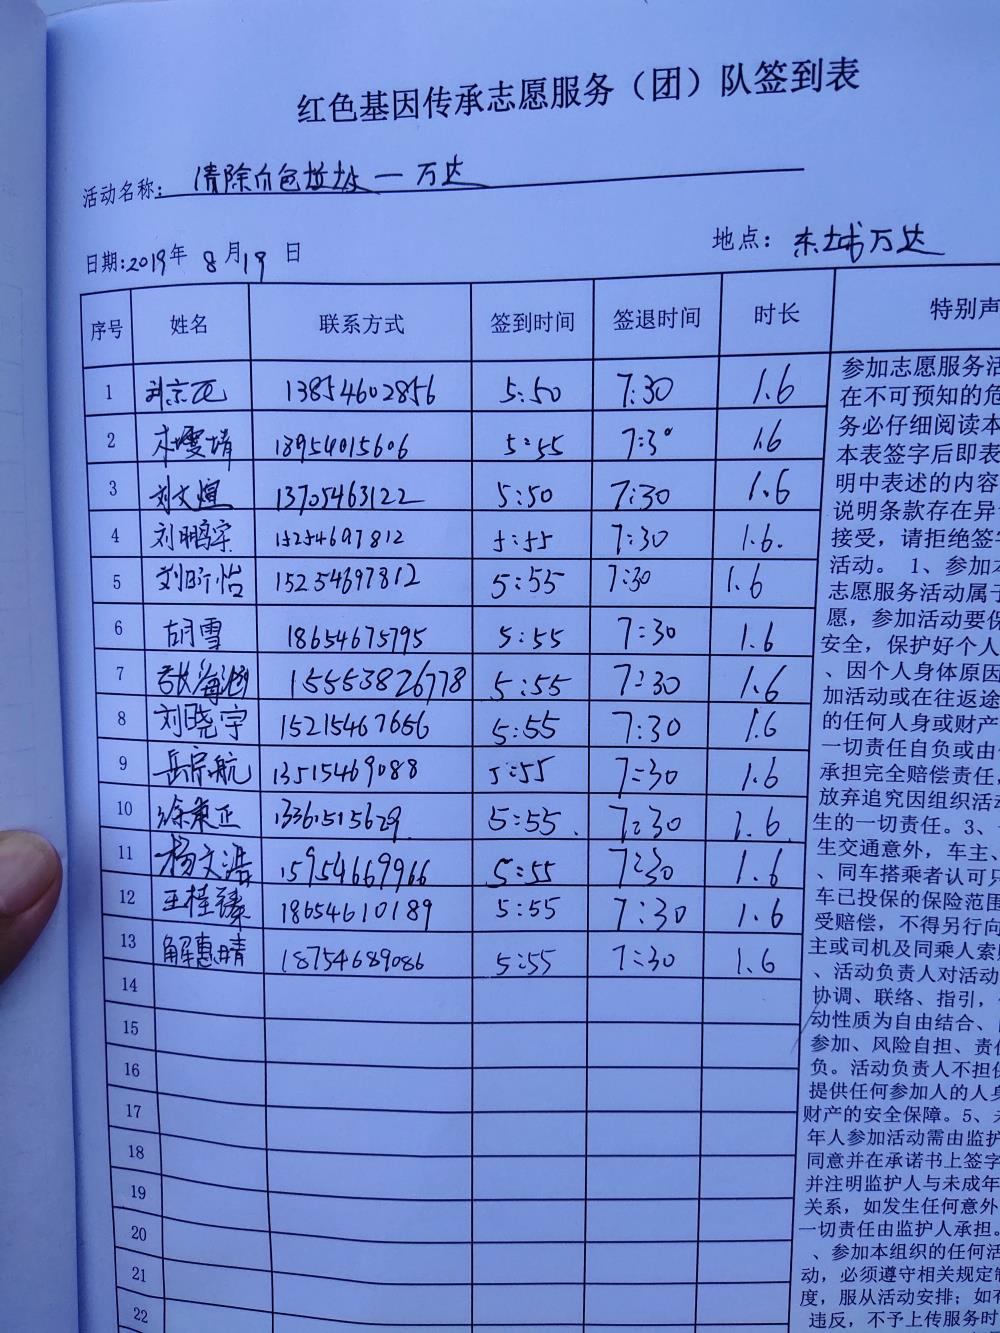 红色基因传承志愿服务（团）队签到表
活动名称: 清除白色垃圾—万达
日期:2019年 8月19日 地点: 东城万达
序号 姓名 联系方式 签到时间 签退时间 时长 特别声
1 13854602856 5:50 7:30 1.6
2 13954015606 5:55 7:30 1.6
3 刘文煊 13705463122 5:50 7:30 1.6
4 刘鹏宇 15254697812 5:55 7:30 1.6.
5 刘昕怡 15254697812 5:55 7:30 1.6
6 胡雪 18654675795 5:55 7:30 1.6
7 15553826778 5:55 7:30 1.6
8 刘晓宇 15215467656 5:55 7:30 1.6
9 岳宗航 13515469088 5:55 7:30 1.6
10 徐秉正 13361515629 5:55. 7:30 1.6.
11 杨文浩 15954669966 5:55 7:30 1.6
12 王桂臻 18654610189 5:55 7:30 1.6
13 解惠晴 18754689086 5:55 7:30 1.6
14
15
16
17
18
19
20
21
22
参加志愿服务活
在不可预知的危
务必仔细阅读本
本表签字后即表
明中表述的内容
说明条款存在异
接受，请拒绝签字
活动。 1、参加本
志愿服务活动属于
愿，参加活动要保
安全，保护好个人
、因个人身体原因
加活动或在往返途
的任何人身或财产
一切责任自负或由
承担完全赔偿责任，
放弃追究因组织活动
生的一切责任。3、
生交通意外，车主、
、同车搭乘者认可只
车已投保的保险范围
受赔偿，不得另行向
主或司机及同乘人索赔
、活动负责人对活动
协调、联络、指引，
动性质为自由结合、
参加、风险自担、责任
负。活动负责人不担保
提供任何参加人的人身
财产的安全保障。5、未
年人参加活动需由监护
同意并在承诺书上签字
并注明监护人与未成年
关系，如发生任何意外
一切责任由监护人承担。
、参加本组织的任何活
动，必须遵守相关规定制
度，服从活动安排；如有
违反，不予上传服务时